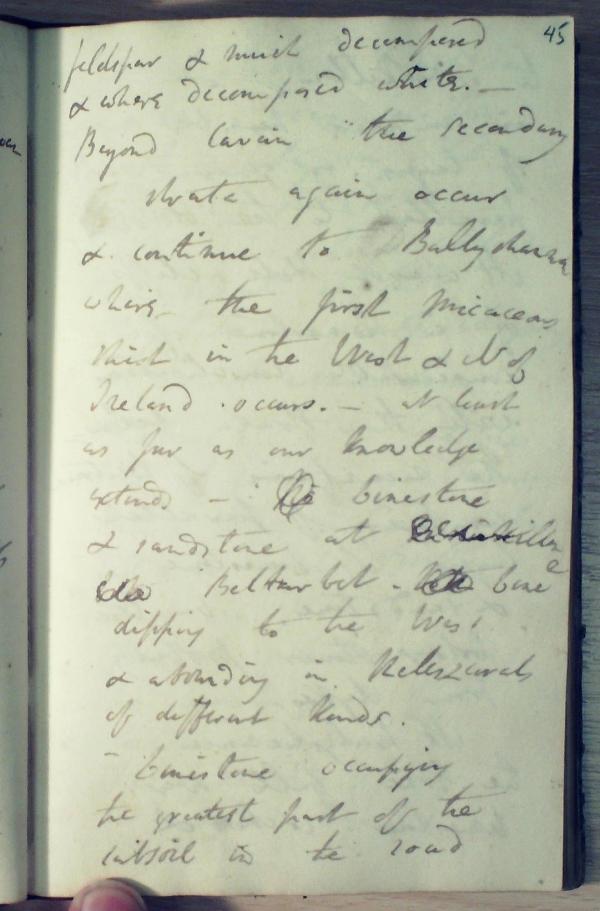 45
feldspar & much decomposed
& where decomposed white. —
Beyond Cavan the secondary
strata again occur
& continue to Ballyshanna
where the first Micaceous
shist in the West & N of
Ireland occurs. — at least
as far as our knowledge
extends — limestone
& sandstone at
Belturbet - lime
dipping to the West
& abounding in
of different kinds.
- Limestone occupying
the greatest part of the
subsoil in the road